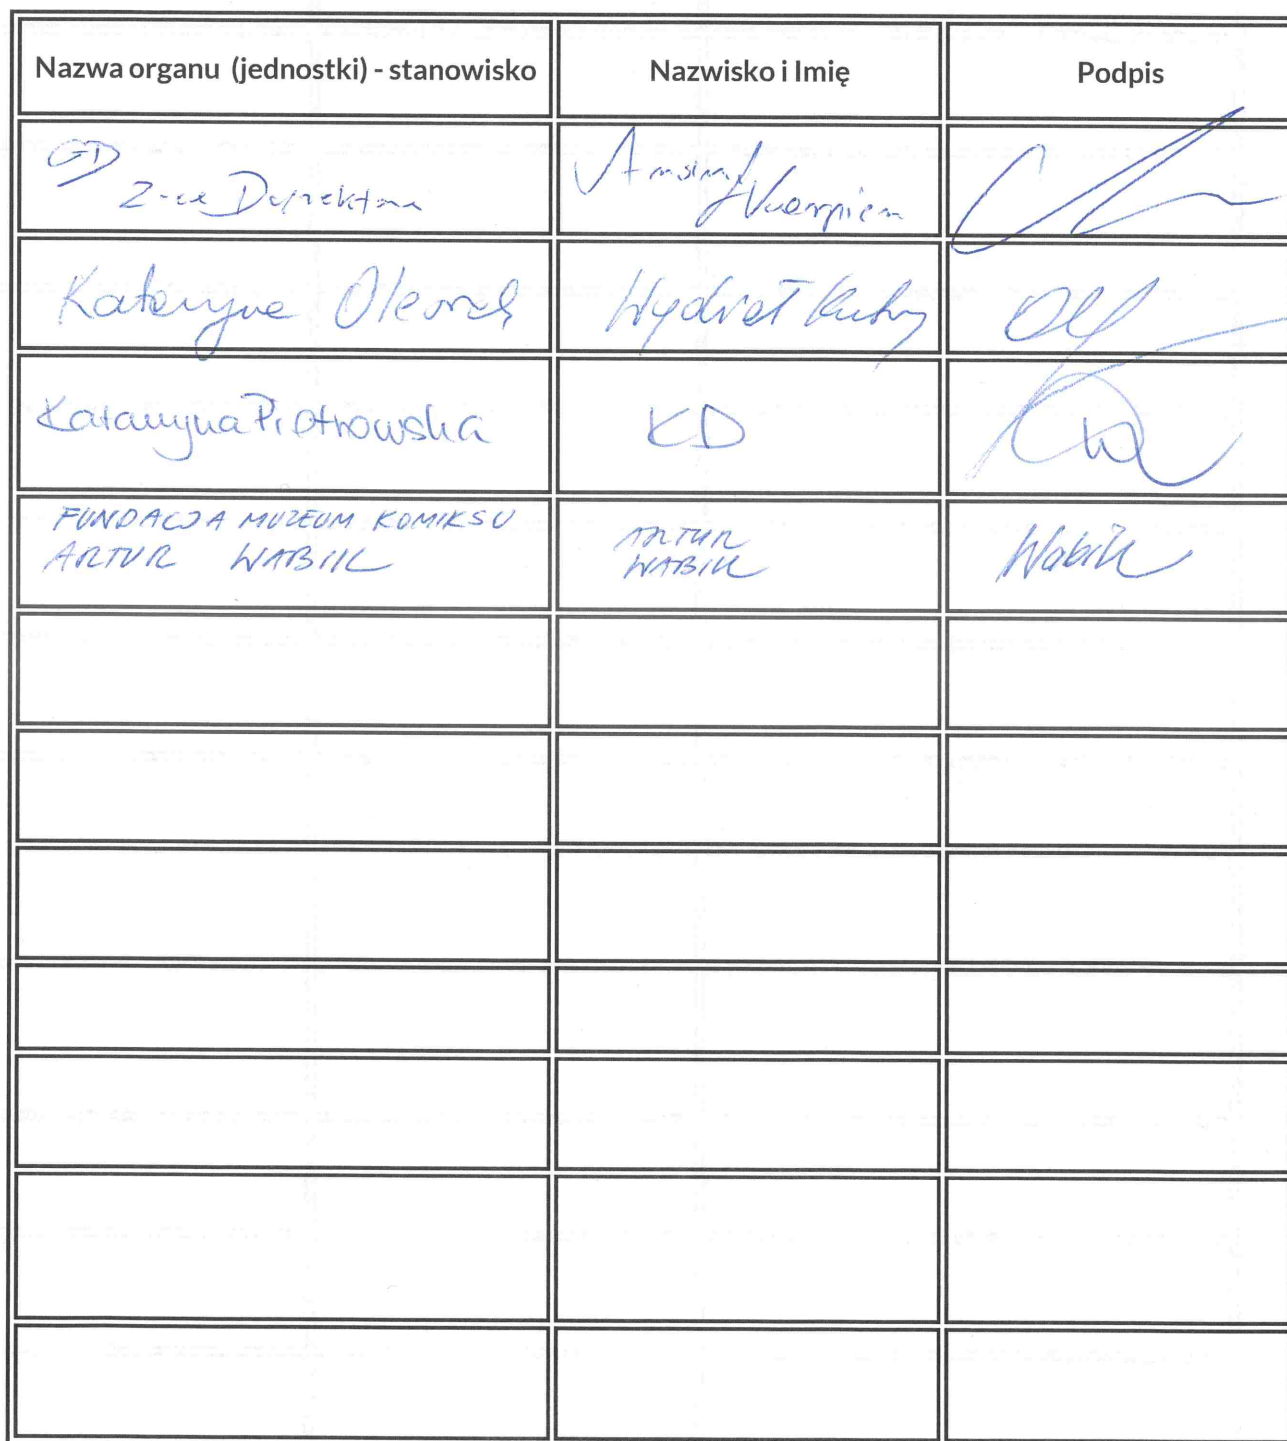 Nazwa organu (jednostki) - stanowisko
Nazwisko i Imię
Podpis
GD
Z-ca Dyrektora
Katarzyna Olesiak
Wydział Kultury
Katarzyna Piotrowska
KD
FUNDACJA MUZEUM KOMIKSU
ARTUR WABIK
ARTUR
WABIK
Wabik